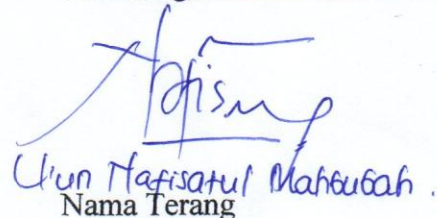 Nafisatul Mahbubah.
Nama Terang